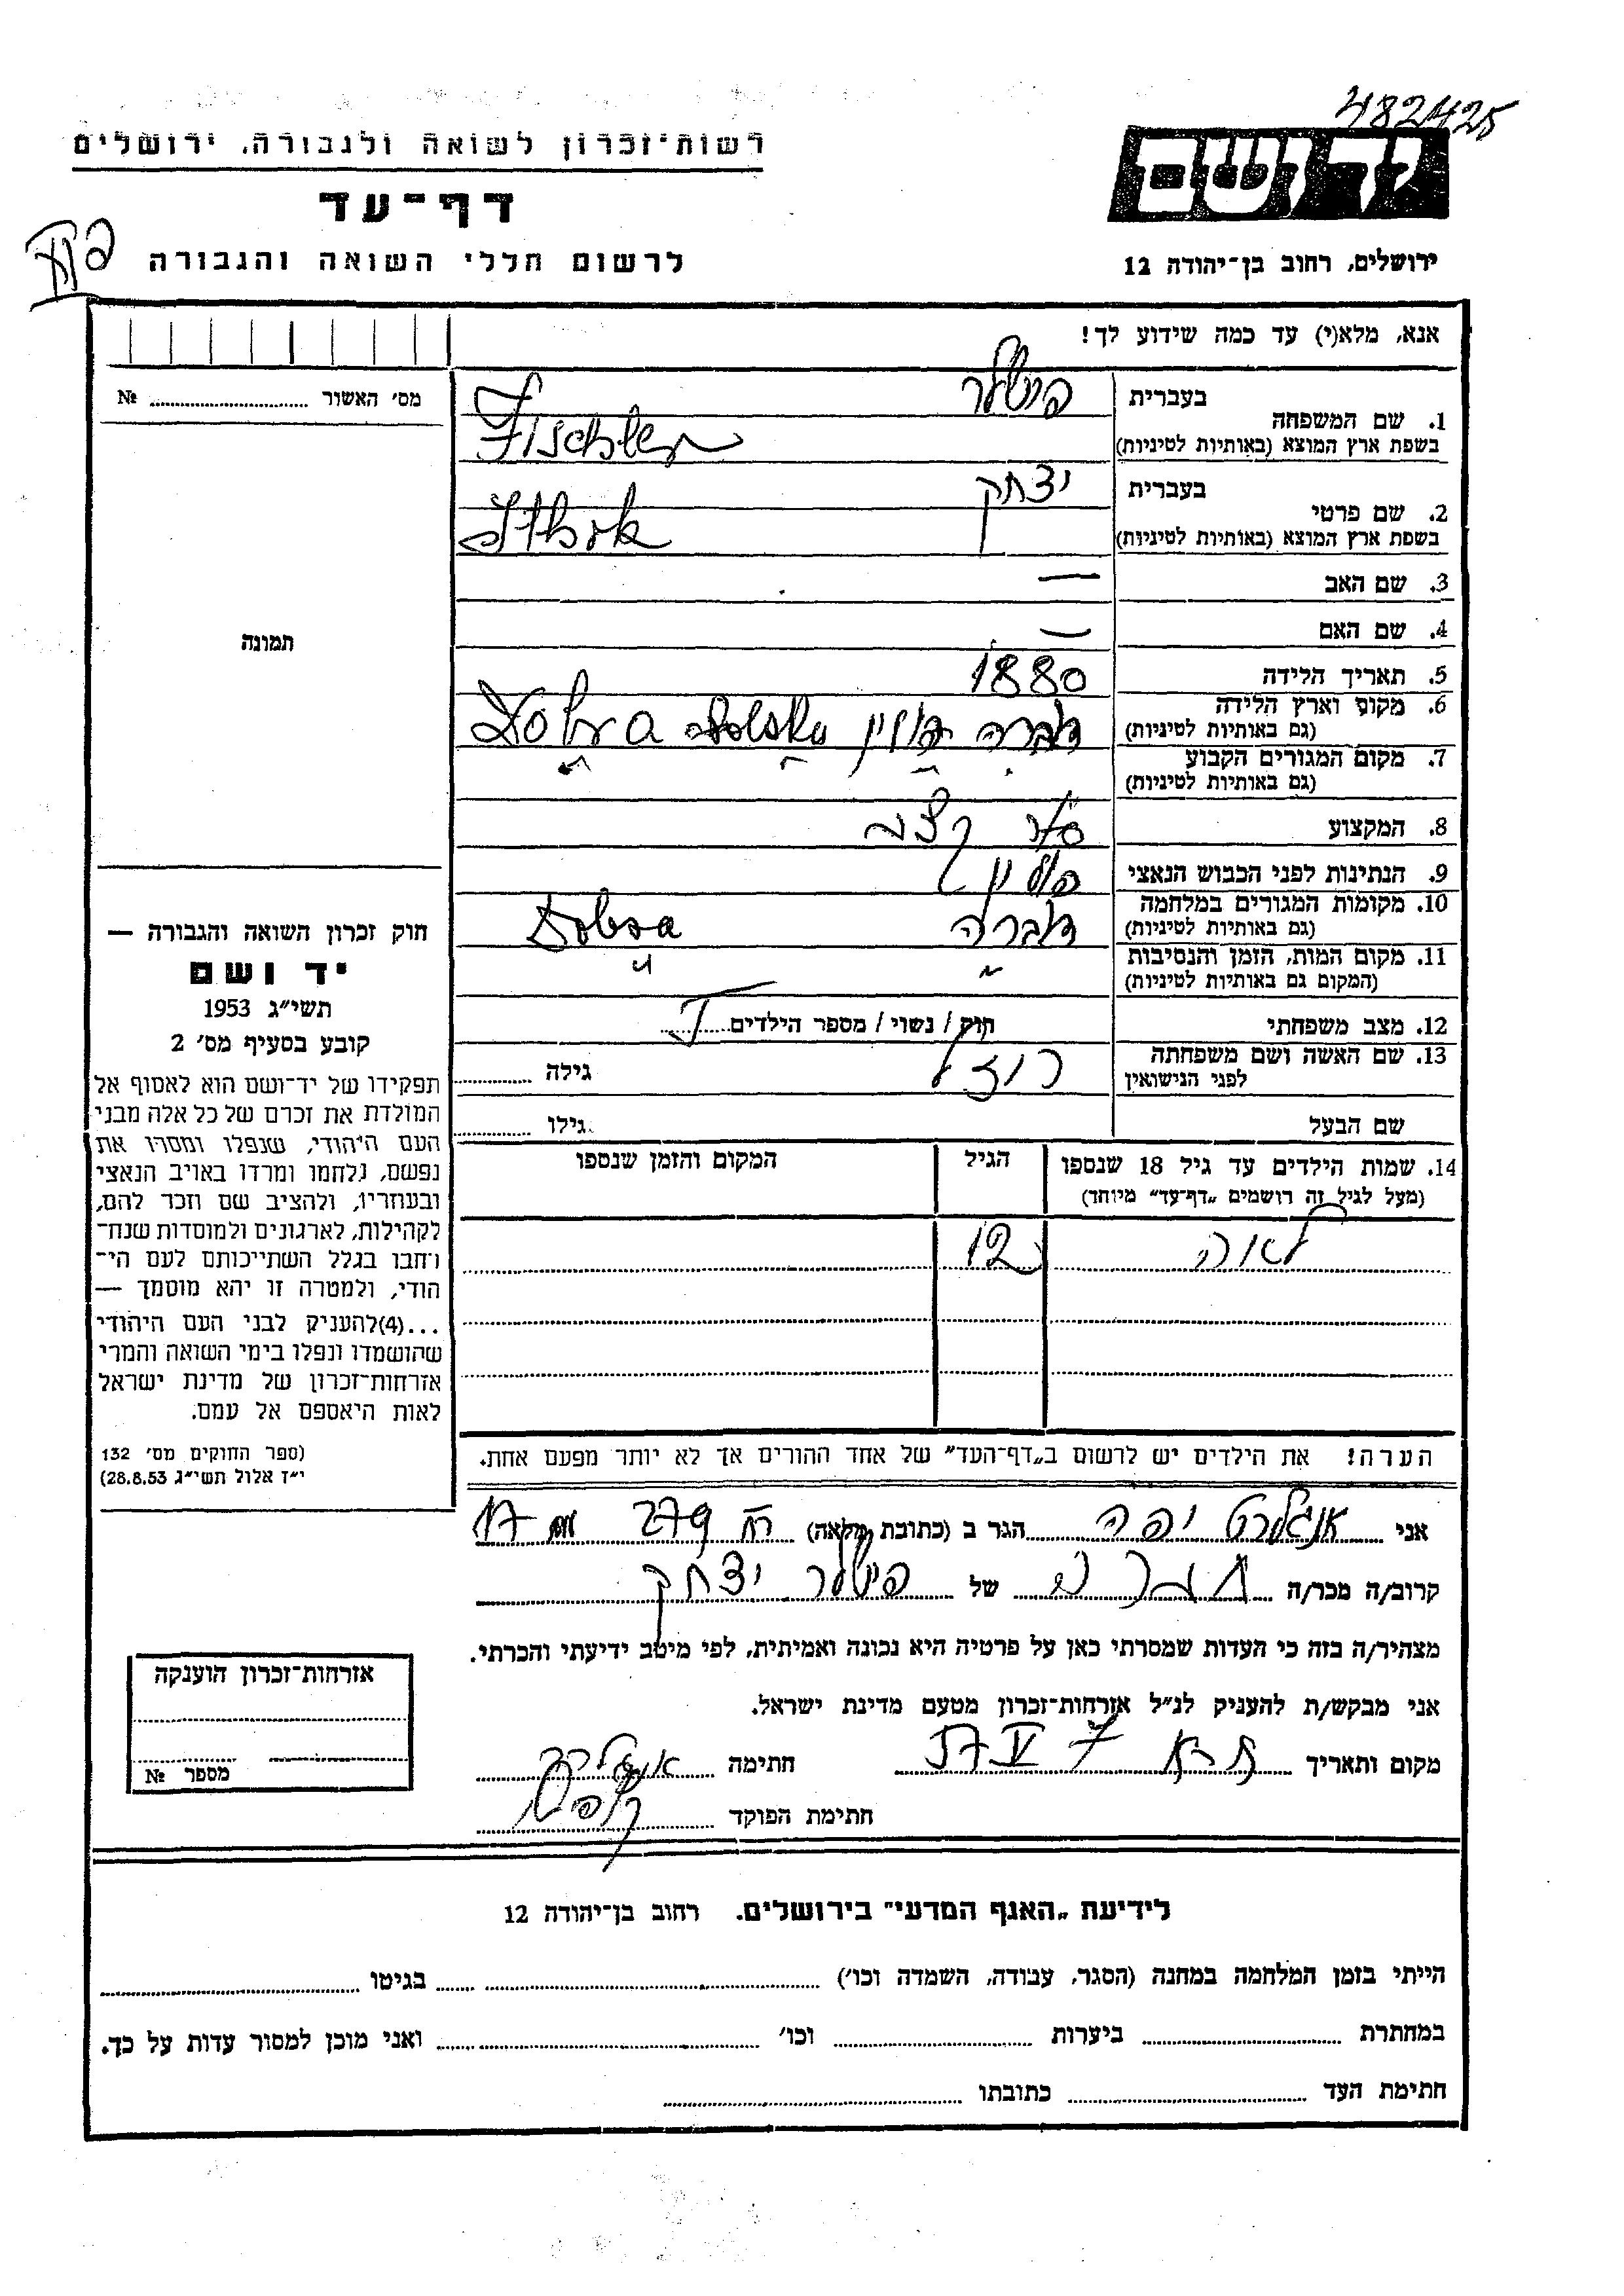 482425
יד ושם
רשות־זכרון לשואה ולגבורה, ירושלים
דף־עד
לרשום חללי השואה והגבורה
ירושלים, רחוב בן־יהודה 12
אנא, מלא(י) עד כמה שידוע לך!
מס׳ האשור ............ №
תמונה
1. שם המשפחה
בעברית פישלר
בשפת ארץ המוצא (באותיות לטיניות) Fischler
2. שם פרטי
בעברית יצחק
בשפת ארץ המוצא (באותיות לטיניות)
3. שם האב —
4. שם האם —
5. תאריך הלידה 1880
6. מקום וארץ הלידה
(גם באותיות לטיניות) דוברה פולין Polska Dobra
7. מקום המגורים הקבוע
(גם באותיות לטיניות) ״ ״ ״ ״
8. המקצוע
9. הנתינות לפני הכבוש הנאצי פולין
10. מקומות המגורים במלחמה
(גם באותיות לטיניות) דוברה Dobra
11. מקום המות, הזמן והנסיבות
(המקום גם באותיות לטיניות) ״ ״
12. מצב משפחתי רוק / נשוי / מספר הילדים I
13. שם האשה ושם משפחתה
לפני הנישואין רוזל גילה ............
שם הבעל גילו ............
14. שמות הילדים עד גיל 18 שנספו
(מעל לגיל זה רושמים „דף־עד״ מיוחד)
הגיל
המקום והזמן שנספו
לאה 12
הערה! את הילדים יש לרשום ב„דף־העד״ של אחד ההורים אך לא יותר מפעם אחת.
חוק זכרון השואה והגבורה —
יד ושם
תשי״ג 1953
קובע בסעיף מס׳ 2
תפקידו של יד־ושם הוא לאסוף אל
המולדת את זכרם של כל אלה מבני
העם היהודי, שנפלו ומסרו את
נפשם, נלחמו ומרדו באויב הנאצי
ובעוזריו, ולהציב שם וזכר להם,
לקהילות, לארגונים ולמוסדות שנח־
רחבו בגלל השתייכותם לעם הי־
הודי, ולמטרה זו יהא מוסמך —
...(4)להעניק לבני העם היהודי
שהושמדו ונפלו בימי השואה והמרי
אזרחות־זכרון של מדינת ישראל
לאות היאספם אל עמם.
(ספר החוקים מס׳ 132
י״ז אלול תשי״ג 28.8.53)
אני אנגלרט יפה הגר ב (כתובת מלאה) 279 17
קרוב/ה מכר/ה של פישלר יצחק
מצהיר/ה בזה כי העדות שמסרתי כאן על פרטיה היא נכונה ואמיתית, לפי מיטב ידיעתי והכרתי.
אני מבקש/ת להעניק לנ״ל אזרחות־זכרון מטעם מדינת ישראל.
מקום ותאריך ת״א 7 V 57 חתימה
חתימת הפוקד
אזרחות־זכרון הוענקה
מספר №
לידיעת „האגף המדעי״ בירושלים. רחוב בן־יהודה 12
הייתי בזמן המלחמה במחנה (הסגר, עבודה, השמדה וכו׳) ............ בגיטו ............
במחתרת ............ ביערות ............ וכו׳ ............ ואני מוכן למסור עדות על כך.
חתימת העד ............ כתובתו ............